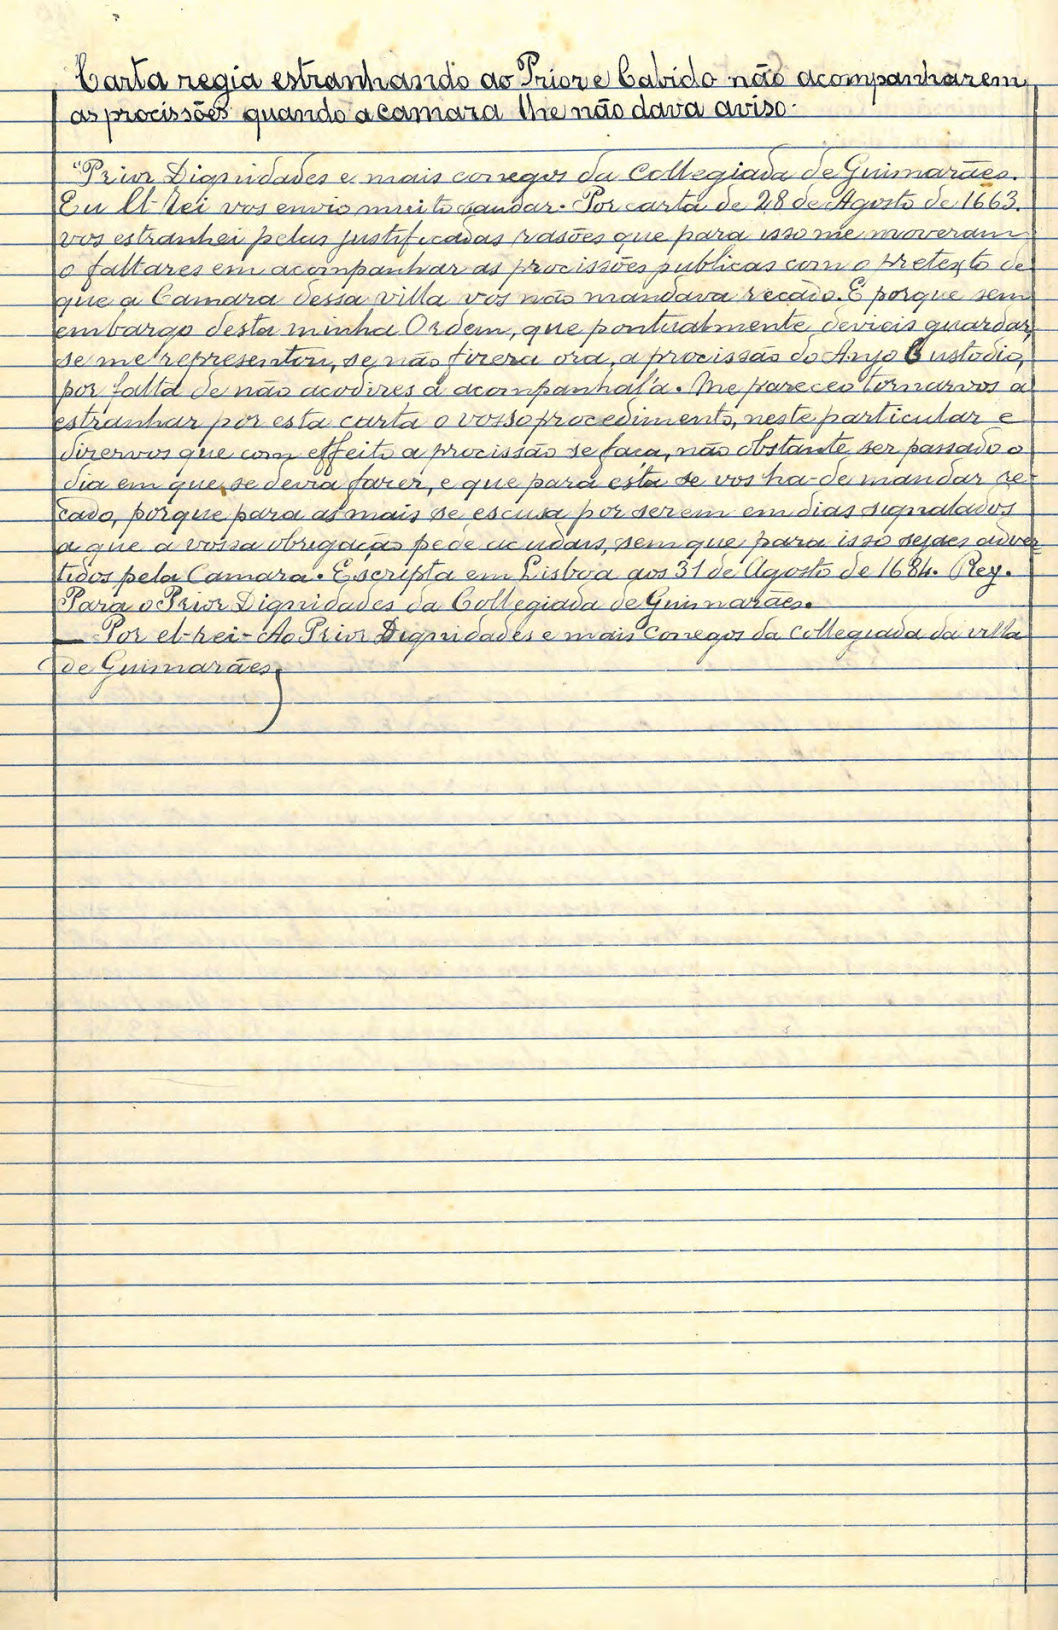 Carta regia estranhando ao Prior e Cabido não acompanharem
as procissões quando a camara lhe não dava aviso.
"Prior Dignidades e mais conegos da Collegiada de Guimarães.
Eu El-Rei vos envio muito saudar. Por carta de 28 de Agosto de 1663.
vos estranhei pelas justificadas rasões que para isso me moveram
o faltares em acompanhar as procissões publicas com o pretexto de
que a Camara dessa villa vos não mandava recado. E porque sem
embargo desta minha Ordem, que pontualmente devieis guardar,
se me representou, se não fizera ora, a procissão do Anjo Custodio,
por falta de não acodires a acompanhal'a. Me pareceo tornarvos a
estranhar por esta carta o vosso procedimento, neste particular e
dizervos que com effeito a procissão se faça, não obstante ser passado o
dia em que se devia fazer, e que para esta se vos ha-de mandar re-
cado, porque para as mais se escusa por serem em dias signalados
a que a vossa obrigação pede acudais, sem que para isso sejaes adver-
tidos pela Camara. Escripta em Lisboa aos 31 de Agosto de 1684. Rey.
Para o Prior Dignidades da Collegiada de Guimarães.
— Por el-rei - Ao Prior Dignidades e mais Conegos da Collegiada da villa
de Guimarães